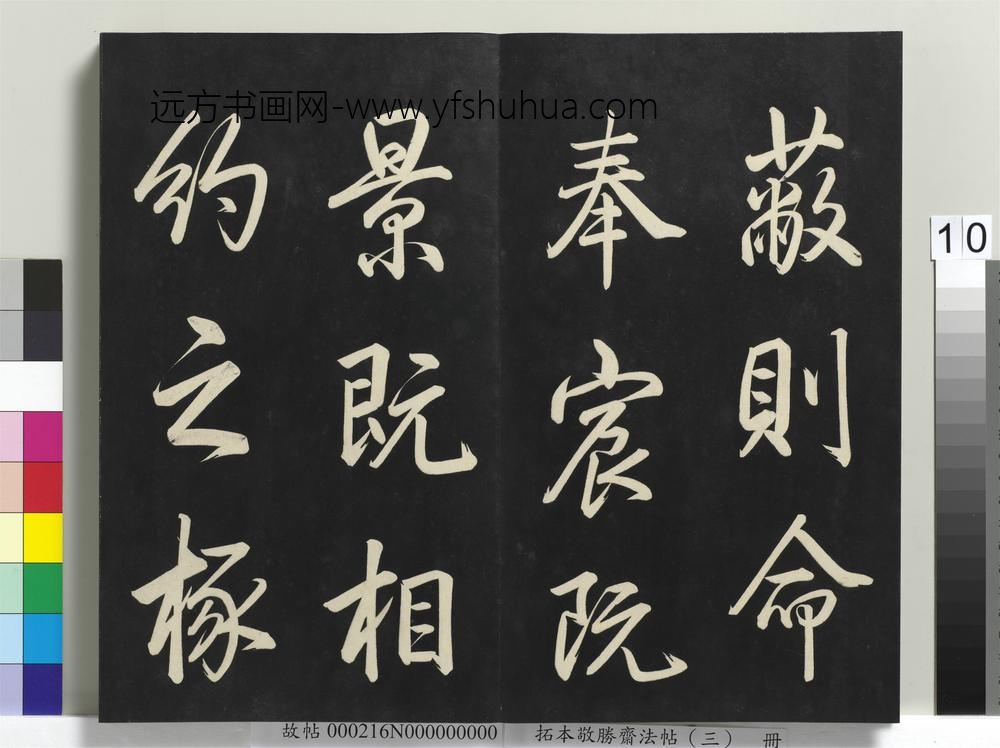 蔽則命
奉宸既
景既相
約之椽
远方书画网-www.yfshuhua.com
10
故帖 000216N000000000
拓本敬勝齋法帖(三) 冊